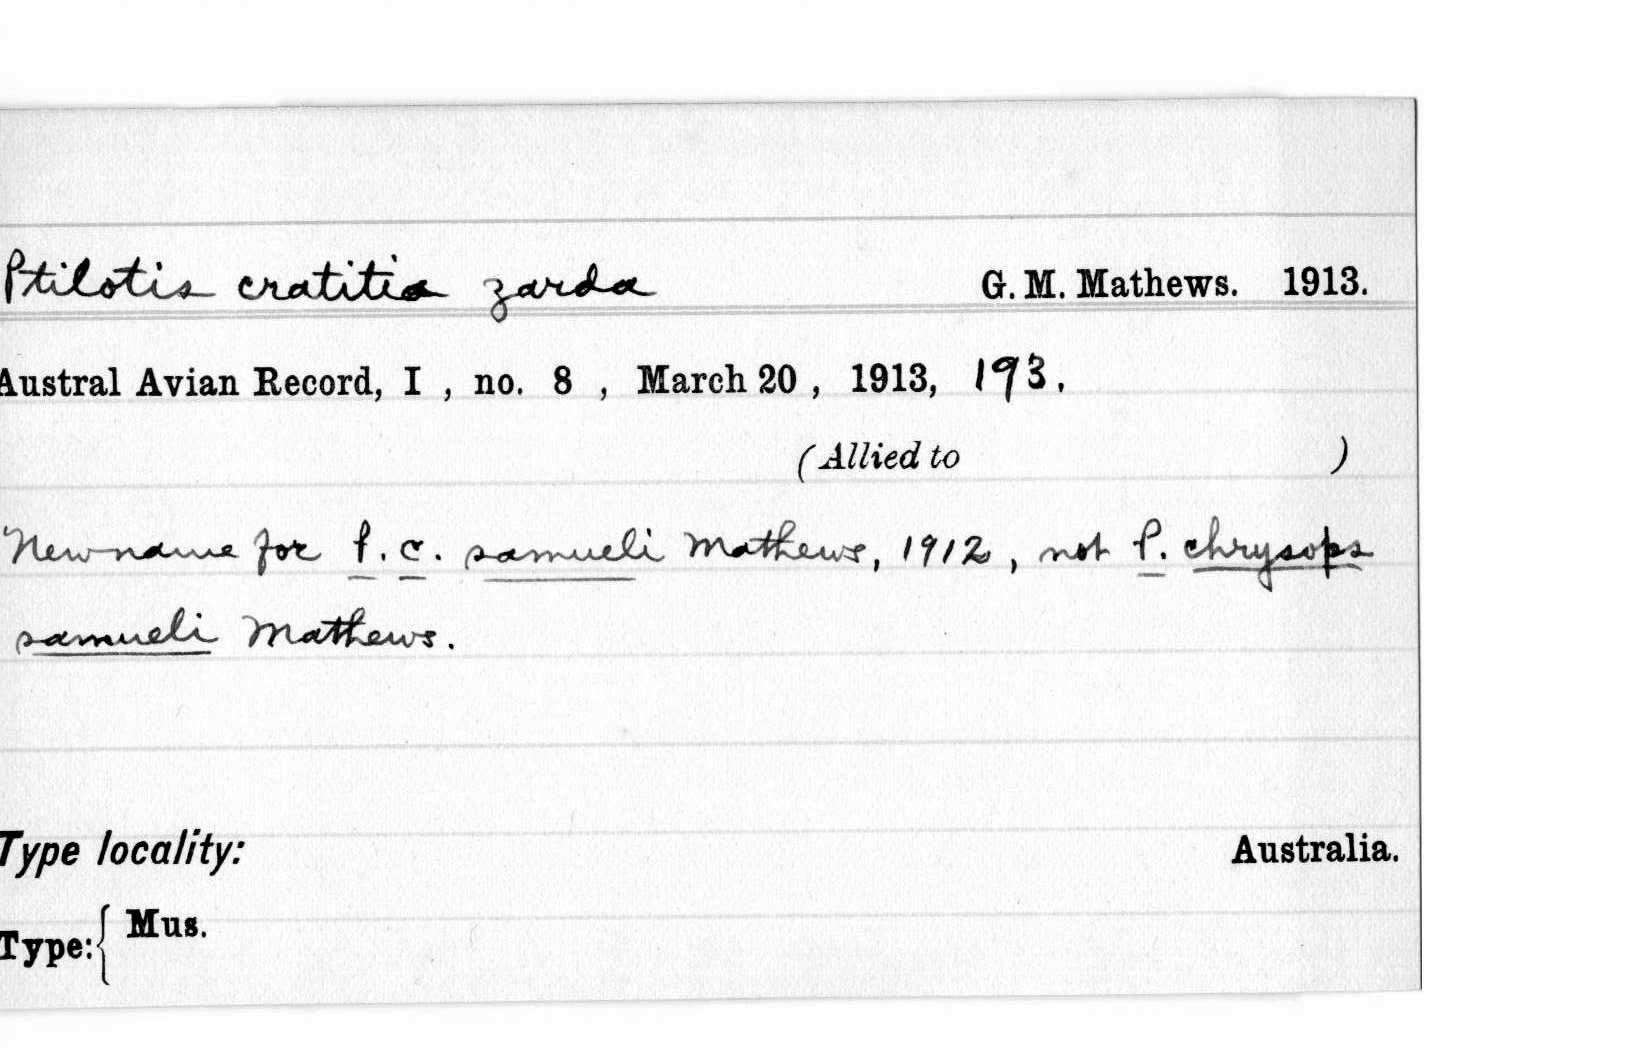 Ptilotis cratitia zarda G. M. Mathews. 1913.
Austral Avian Record, I , no. 8 , March 20 , 1913, 193.
(Allied to )
New name for P. c. samueli Mathews, 1912, not P. chrysops
samueli Mathews.
Type locality: Australia.
Type: { Mus.